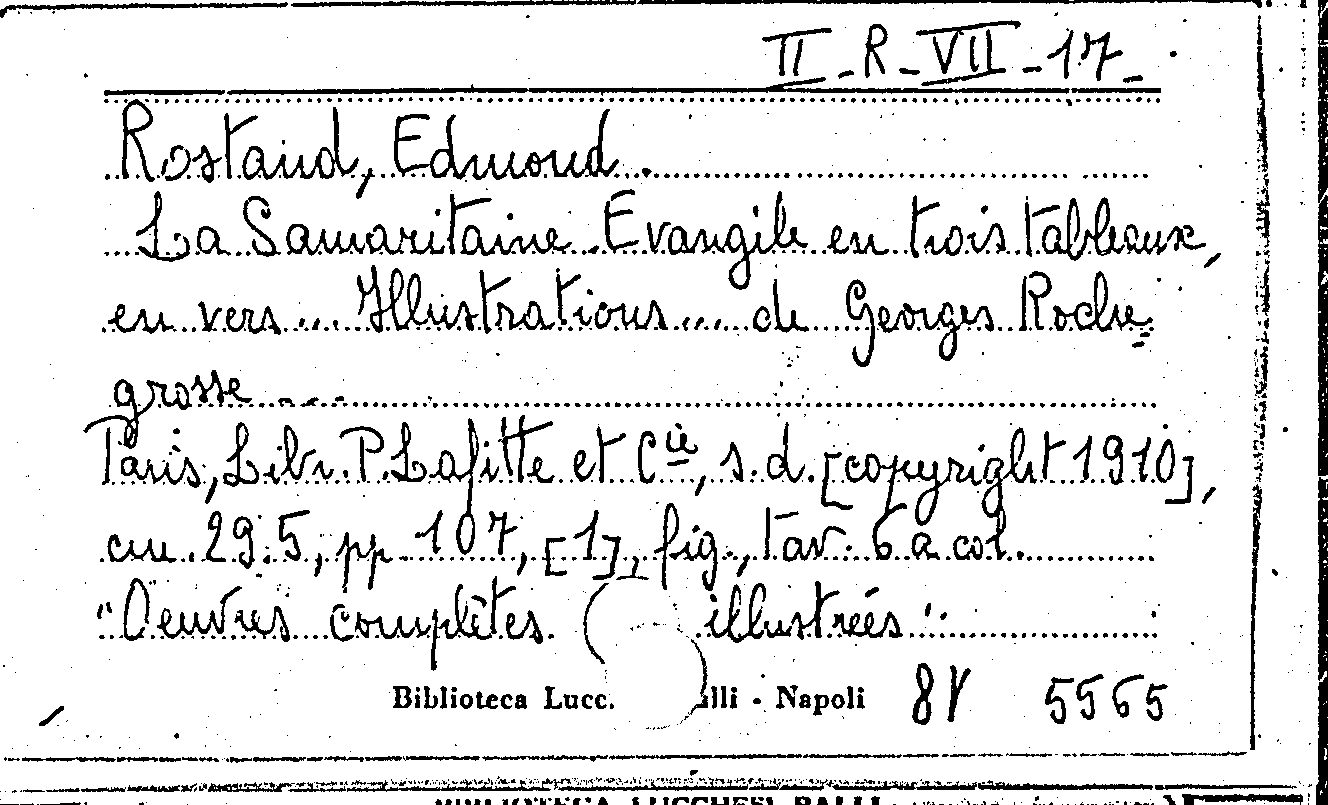 II - R - VII - 17 -
Rostand, Edmond.
La Samaritaine. Evangile en trois tableaux,
en vers ... Illustrations ... de Georges Roche=
grosse ...
Paris, Libr. P. Lafitte et Cie, s. d. [copyright 1910],
cm. 29.5, pp. 107, [1], fig., tav. 6 a col.
"Oeuvres complètes illustrées".
Biblioteca Lucc. alli - Napoli 5565
BIBLIOTECA LUCCHESI PALLI